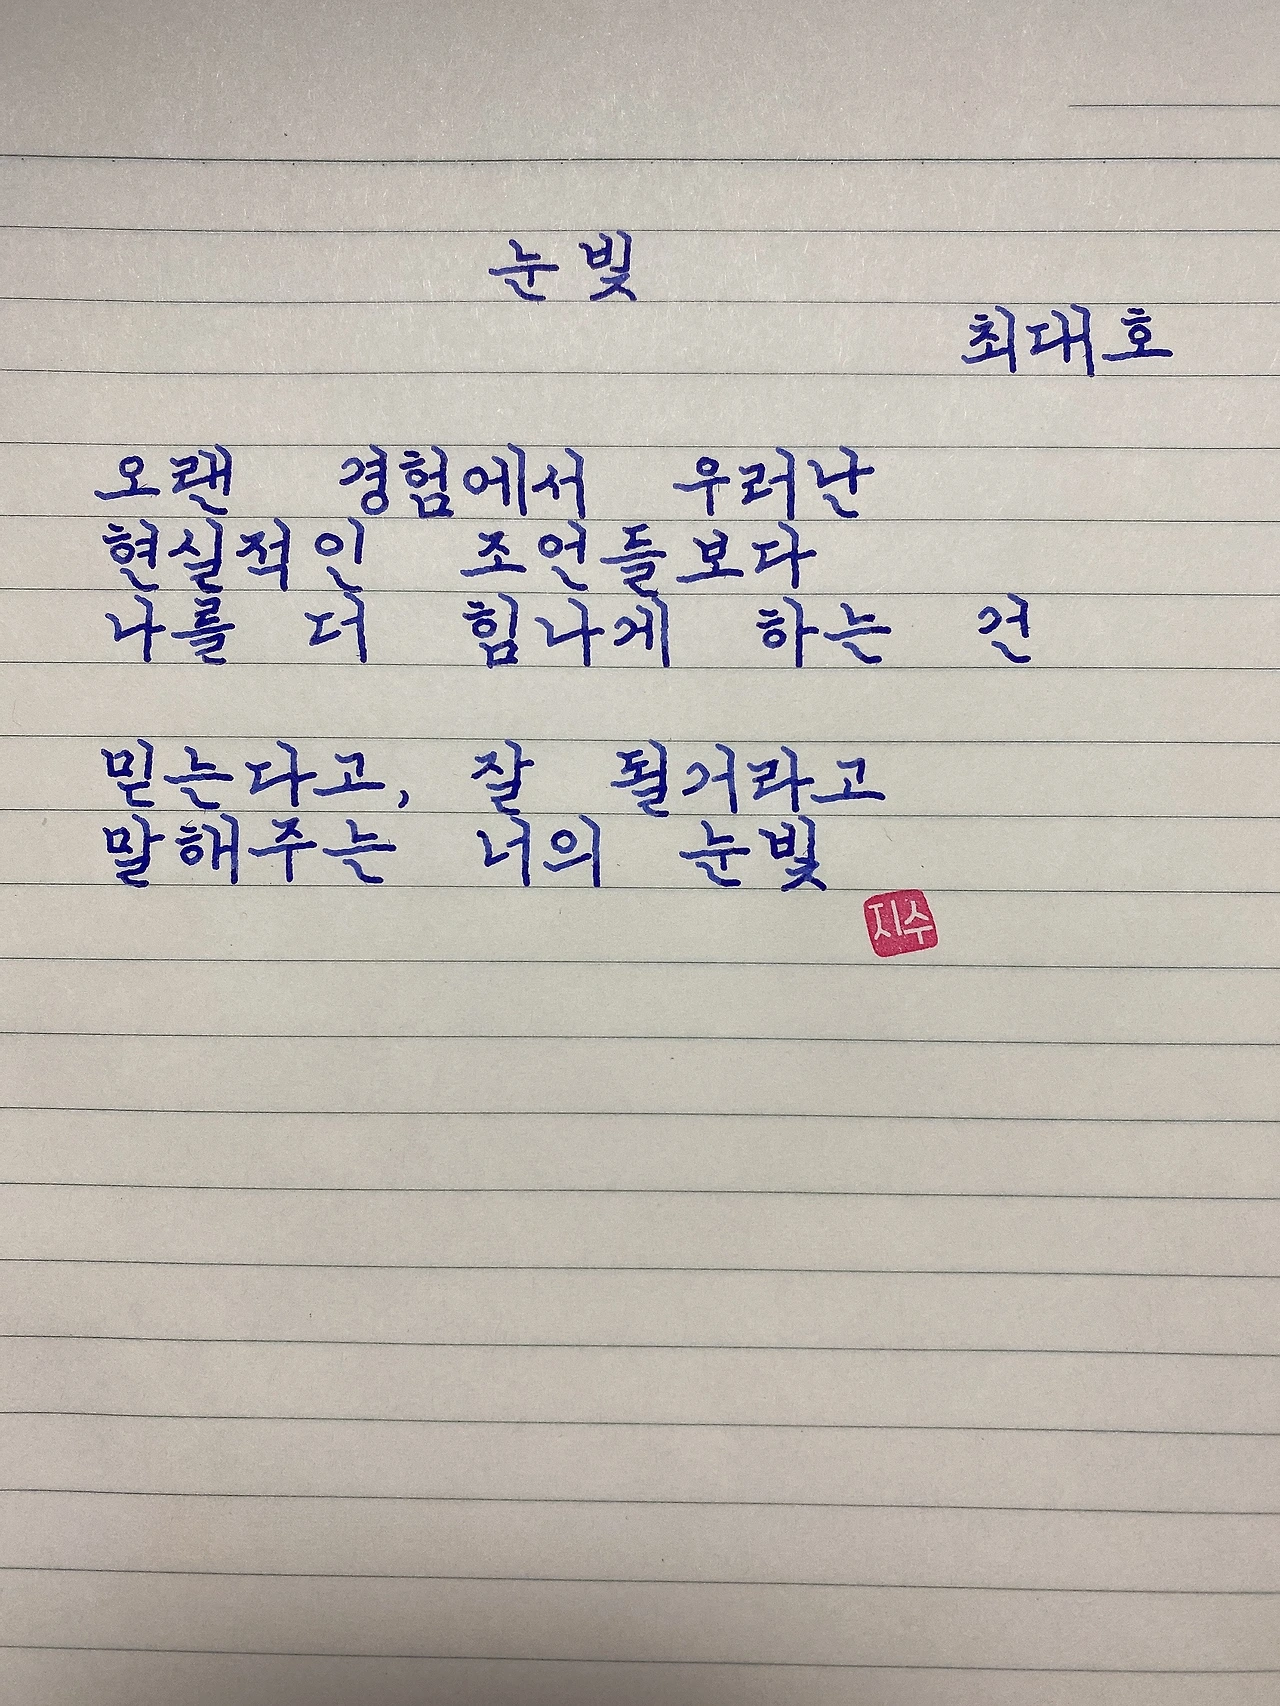 눈빛
최대호
오랜 경험에서 우러난
현실적인 조언들보다
나를 더 힘나게 하는 건
믿는다고, 잘 될거라고
말해주는 너의 눈빛
지수